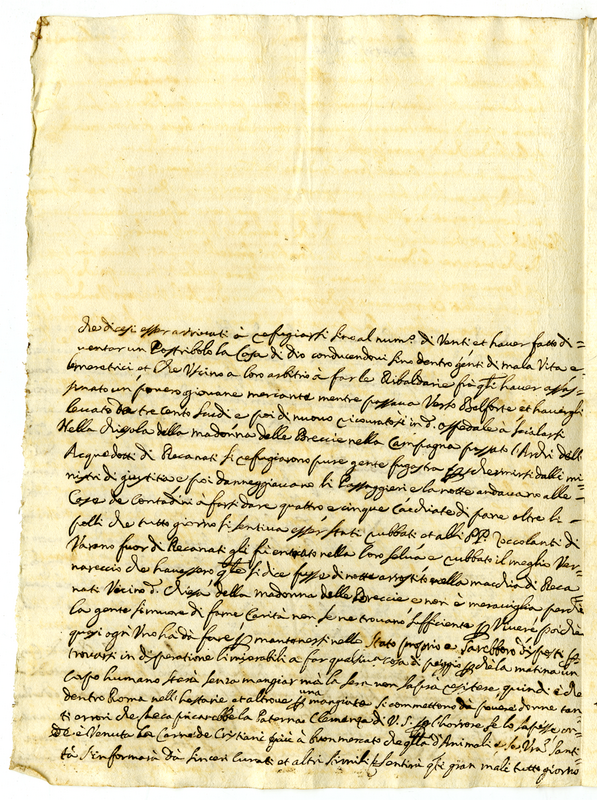 che dicesi esser arrivati à refugiarsi sino al num.º di Venti et haver fatto di=
ventar un Postribolo la Casa di dio conducendovi sino dentro genti di mala Vita e
et che Vicino a loro arbitrio à far le Ribaldarie frà gli hauer assas=
sinato un pouero giouane mercante mentre passaua Verso Belforte et hauergli
leuato da trecento scudi e poi di nuouo ricouratosi in d.º ospedale a
Nella Chiesola della madonna delle Breccie nella Campagna passati l'Archi dell'
Acquedotti di Recanati si refugiarono pure gente fugestra dalli mi=
nistri di giustitia e poi danneggiauano li Passaggieri e la notte andauano alle
Case de Contadini à farsi dare quattro e cinque Cacchiate di pane oltre li
polli che tutto giorno si sentiua esser stati rubbati et alli PP. Zoccolanti di
Varano fuor di Recanati gli fù entrato nella loro selua e rubbati il meglio Ver=
nareccio che hauessero si dice fusse di notte arrostito nella macchia di Reca=
nati Vicino d.ª chiesa della madonna delle Breccie e non è merauiglia perche
la gente si muore di fame Carità non se ne trouano sufficiente p Viuere poi che
quasi ogni Uno hà da fare p mantenersi nello stato proprio e sarebbero disposti p
trouarsi in disperatione li miserabili a far qualsiuoglia cosa di peggio p che la matina un
Corpo humano sterà senza mangiar mà la sera non saprà resistere, quindi è che
dentro Roma nell'hostarie et altroue p una mangiata si commettono da pouere donne tan=
ti errori che la paterna Clemenza di V. S. p l'horrore se lo sapesse
è Venuta la Carne de Cristiani più à buon mercato che quella d'Animali e se Vra. Santi=
tà s'informarà dà sinceri Curati et altri simili sentirà gli gran mali tutto giorno